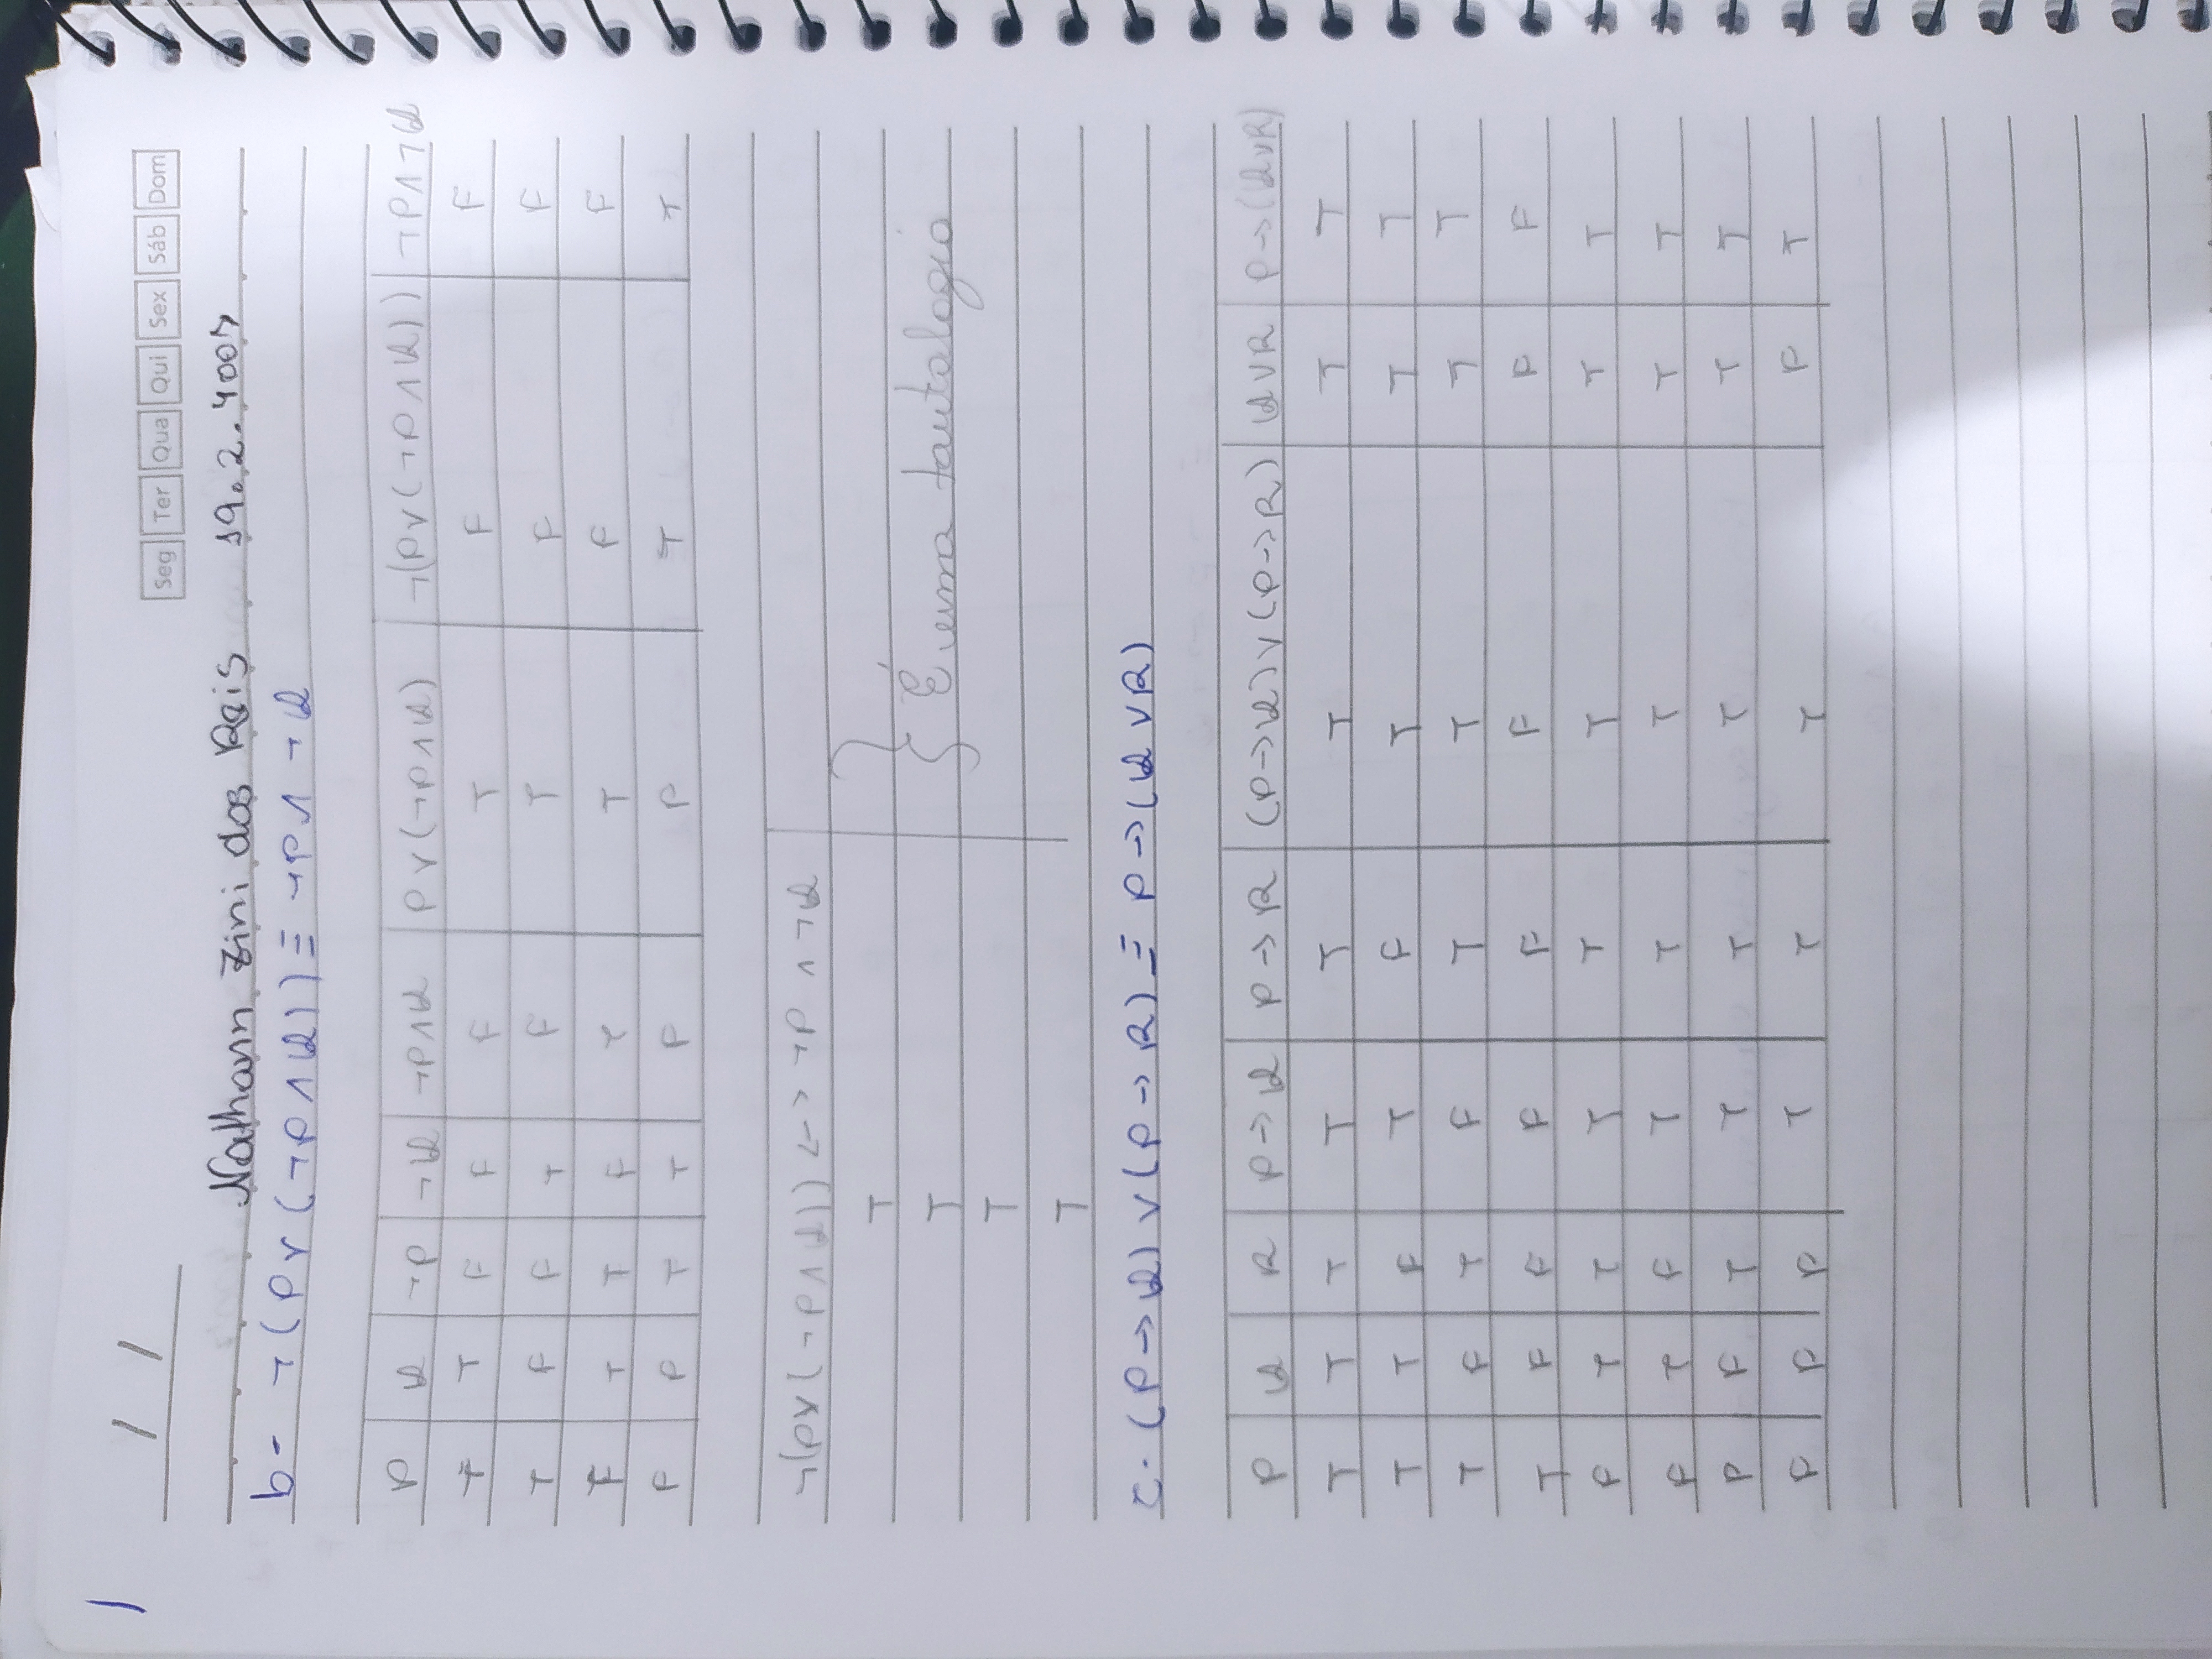 1
/ /
Seg Ter Qua Qui Sex Sáb Dom
Nathann Zini dos Reis 19.2.4007
b- ¬(P∨(¬P∧Q))≡¬P∧¬Q
P Q ¬P ¬Q ¬P∧Q P∨(¬P∧Q) ¬(P∨(¬P∧Q)) ¬P∧¬Q
T T F F F T F F
T F F T F T F F
F T T F T T F F
F F T T F F T T
¬(P∨(¬P∧Q)) <-> ¬P ∧ ¬Q
T
T
} É uma tautologia
T
T
c- (P->Q)∨(P->R) ≡ P->(Q∨R)
P Q R P->Q P->R (P->Q)∨(P->R) Q∨R P->(Q∨R)
T T T T T T T T
T T F T F T T T
T F T F T T T T
T F F F F F F F
F T T T T T T T
F T F T T T T T
F F T T T T T T
F F F T T T F T